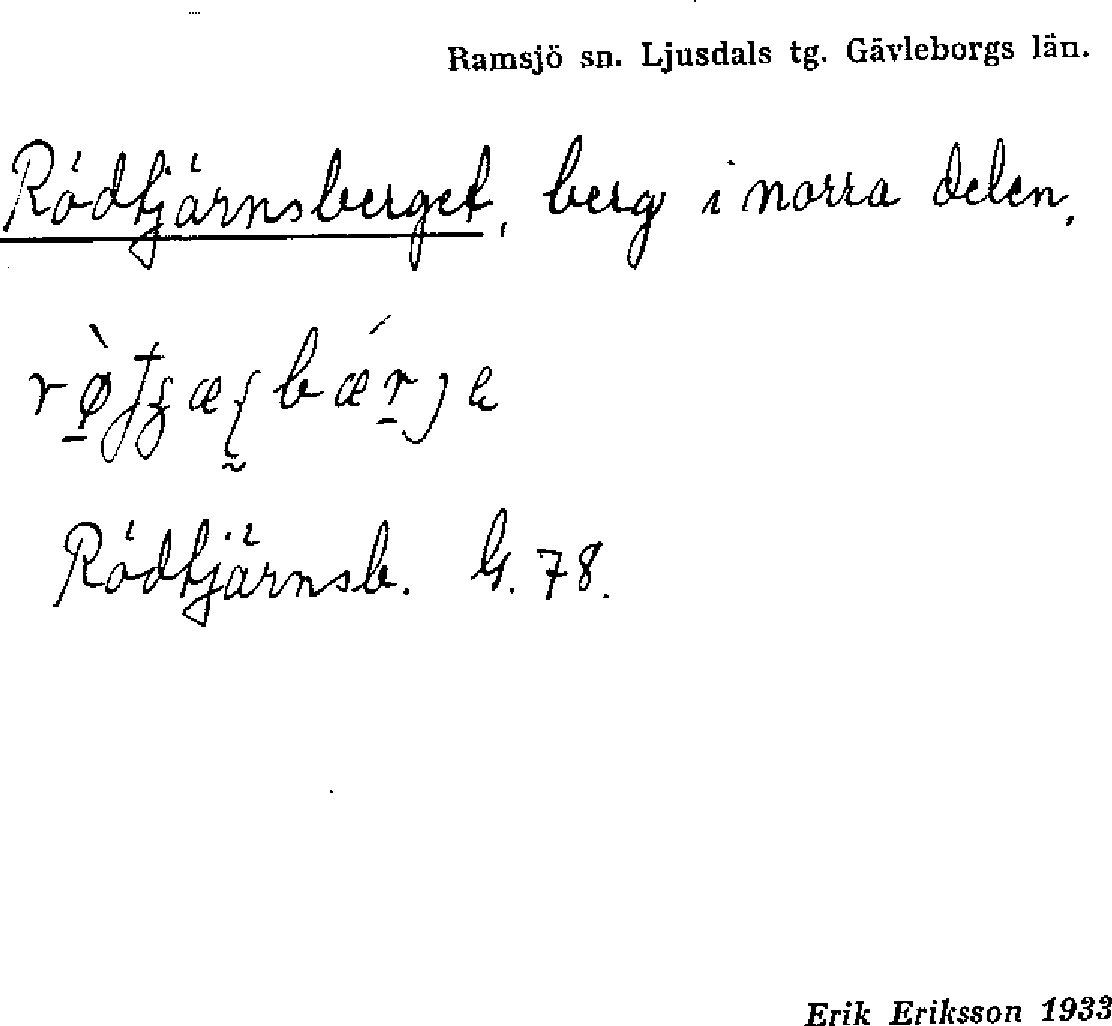 Ramsjö sn. Ljusdals tg. Gävleborgs län.
Rödtjärnsberget, berg i norra delen.
Rödtjärnsb. G. 78.
Erik Eriksson 1933